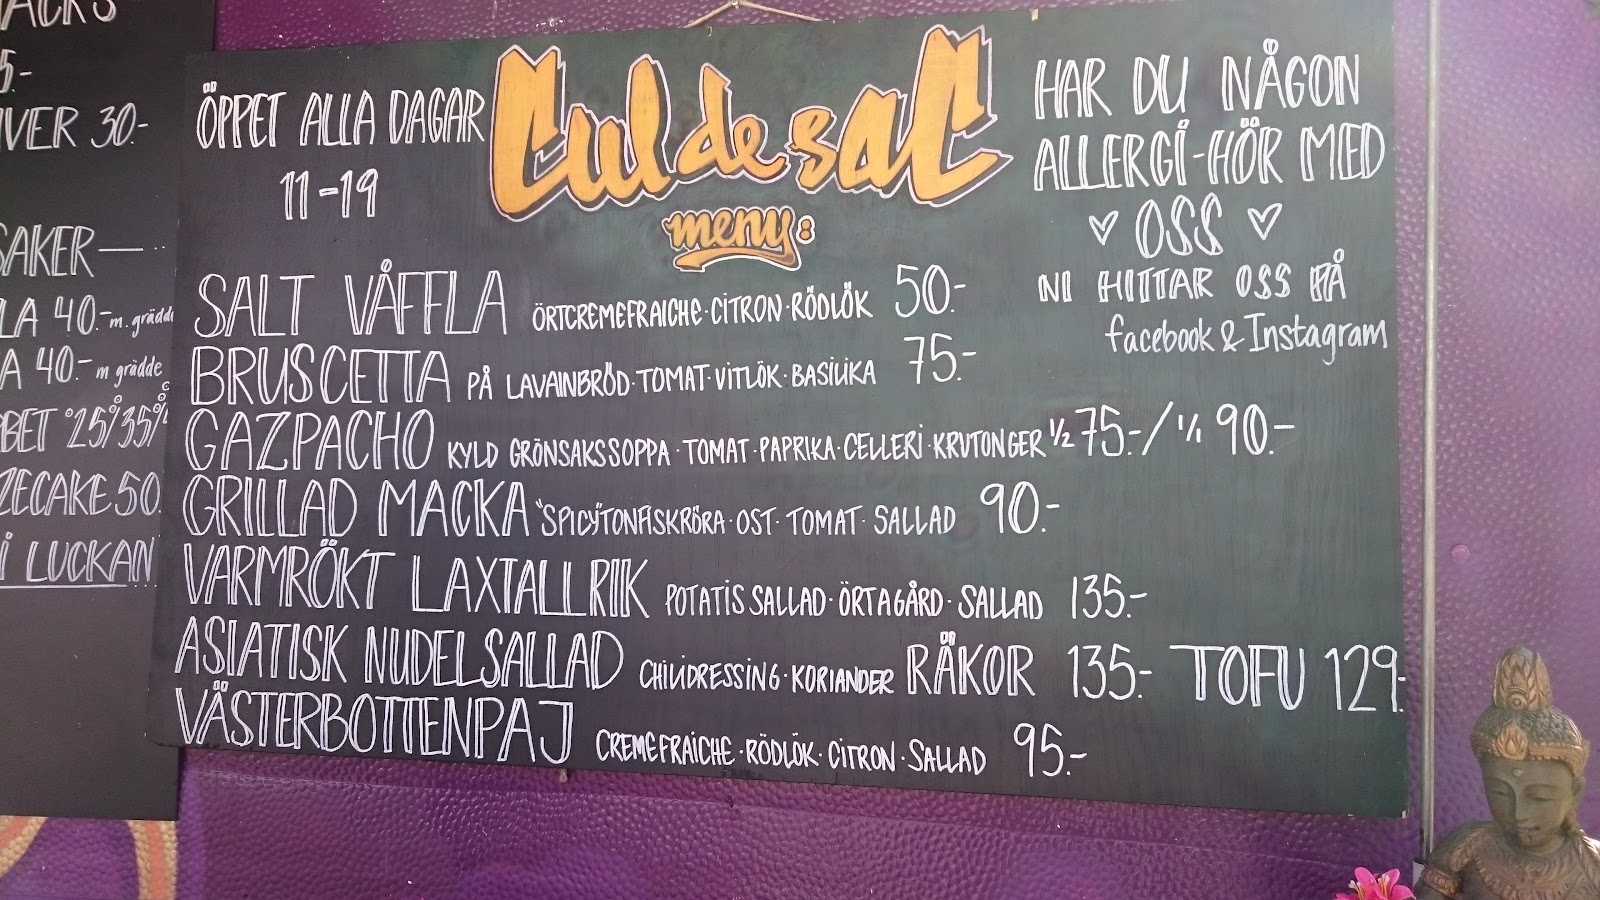 ÖPPET ALLA DAGAR
11-19
Cul de sac
meny:
HAR DU NÅGON
ALLERGI-HÖR MED
♡ OSS ♡
NI HITTAR OSS PÅ
facebook & Instagram
SALT VÅFFLA ÖRTCREMEFRAICHE·CITRON·RÖDLÖK 50:-
BRUSCETTA PÅ LAVAINBRÖD·TOMAT·VITLÖK·BASILIKA 75:-
GAZPACHO KYLD GRÖNSAKSSOPPA·TOMAT·PAPRIKA·CELLERI·KRUTONGER 1/2 75:-/ 1/1 90:-
GRILLAD MACKA "SPICY"TONFISKRÖRA·OST·TOMAT·SALLAD 90:-
VARMRÖKT LAXTALLRIK POTATISSALLAD·ÖRTAGÅRD·SALLAD 135:-
ASIATISK NUDELSALLAD CHILIDRESSING·KORIANDER RÄKOR 135:- TOFU 129:-
VÄSTERBOTTENPAJ CREMEFRAICHE·RÖDLÖK·CITRON·SALLAD 95:-
5:-
30:-
SAKER
40:- m. grädde
40:- m grädde
50
I LUCKAN